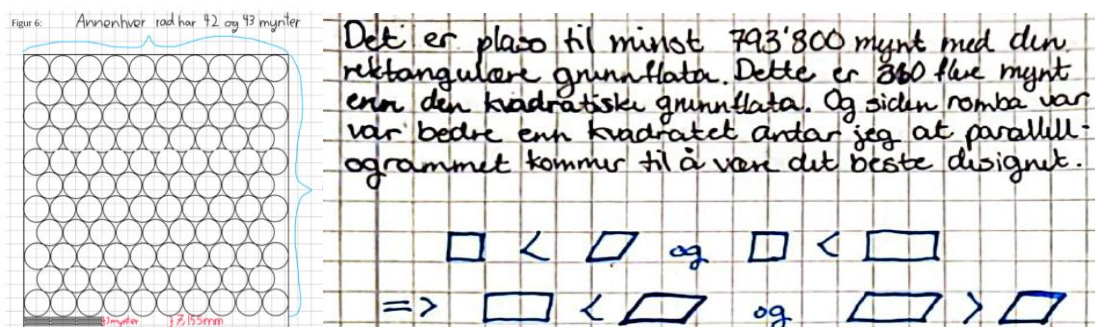 Figur 6: Annenhver rad har 42 og 43 mynter
7,155mm
Det er plass til minst 793'800 mynt med den
rektangulære grunnflata. Dette er flere mynt
enn den kvadratiske grunnflata. Og siden romba var
var bedre enn kvadratet antar jeg at parallell-
ogrammet kommer til å være det beste designet.
< og <
=> < og >